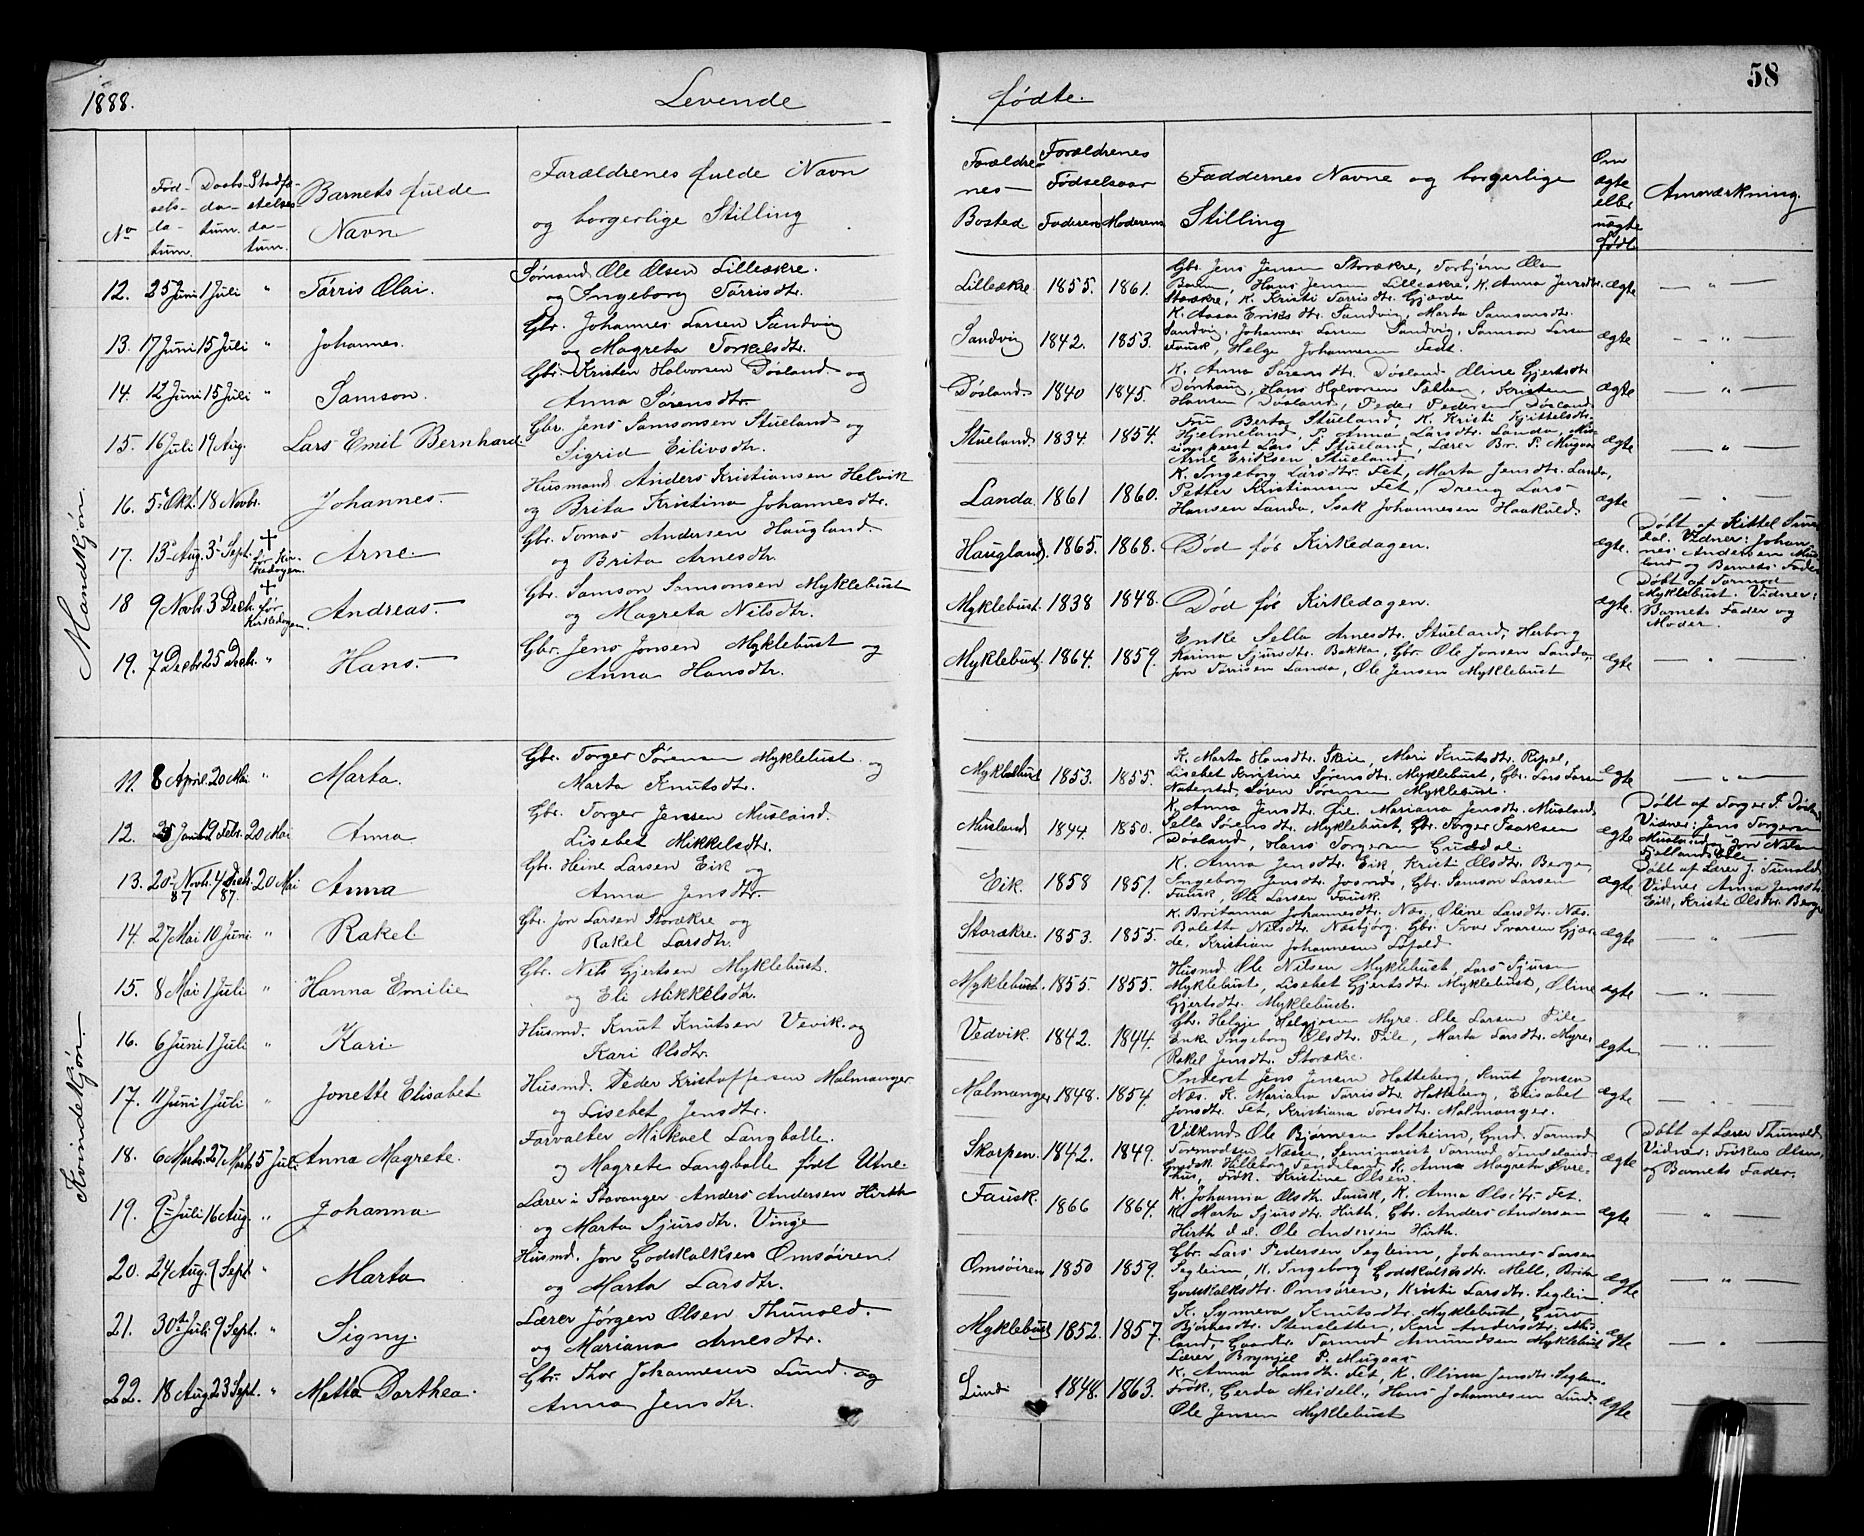 58
1888. Levende fødte.
No
Fødselsdatum.
Daabsdatum.
Stadfæstelsesdatum.
Barnets fulde Navn
Forældrenes fulde Navn og borgerlige Stilling
Forældrenes Bosted
Forældrenes Fødselsaar
Faderens Moderens
Faddernes Navne og borgerlige Stilling
Om ægte eller uægte født
Anmærkning.
Mandkjøn.
12. 25 Juni 1 Juli " Tørris Olai. Sømand Ole Olsen Lilleækre.
og Ingeborg Tørrisdtr.
Lilleækre 1855. 1861. Gbr. Jens Jensen Storækre, Torbjørn Olsen
Hans Jensen Lilleækre, K. Anna Jensdtr.
Storækre, K. Kristi Tørrisdtr. Gjærde ægte — " —
13. 17 Juni 15 Juli " Johannes. Gbr. Johannes Larsen Sandvig
og Magreta Torkelsdtr.
Sandvig 1842. 1853. K. Eriksdtr. Sandvig, Marta Samsonsdtr.
Sandvig, Johannes Larsen Sandvig, Samson Larsen
Fausk, Helge Johannesen Fet. ægte — " —
14. 12 Juni 15 Juli " Samson. Gbr. Kristen Halvorsen Døsland og
Anna Sørensdtr.
Døsland 1840 1845. K. Anna Sørensdtr. Døsland, Oline Gjertsdtr.
Hans Halvorsen Kristen
Hansen Døsland, Peder Pedersen Døsland ægte — " —
15. 16 Juli 19 Aug. Lars Emil Bernhard Gbr. Jens Samsonsen Stueland og
Sigrid Eilivsdtr.
Stueland 1834. 1854. Fru Berta Stueland, K. Kristi Kjittelsdtr.
Hjelmeland, P. Anna Larsdtr. Landa, Mis-
sionsprest Lars S. Stueland, Lærer Br. P. Mugaas
Arne Eriksen Stueland ægte — " —
16. 5 Okt. 18 Novbr. Johannes. Husmand Anders Kristiansen Helvik
og Brita Kristina Johannesdtr.
Landa 1861 1860. K. Ingeborg Larsdtr. Fet, Marta Jensdtr. Landa,
Petter Kristiansen Fet, Dreng Lars
Hansen Landa, Isak Johannesen Haakull. ægte — " —
17. 13 Aug. 3 Sept. + før Kirkedagen. Arne. Gbr. Tomas Andersen Haugland
og Brita Arnesdtr.
Haugland. 1865. 1868. Død før Kirkedagen. ægte. Døbt af Kittel
Vidner: Johan-
nes Andersen
og Barnets Fader
18 9 Novbr. 3 Decb. + før Kirkedagen. Andreas. Gbr. Samson Simonsen Myklebust
og Magreta Nilsdtr.
Myklebust. 1838 1848. Død før Kirkedagen. ægte. Døbt af Tormod
Myklebust. Vidner:
Barnets Fader og
Moder.
19. 7 Decbr. 25 Decb. " Hans. Gbr. Jens Jonsen Myklebust og
Anna Hansdtr.
Myklebust. 1864. 1859. Enke Sella Arnesdtr. Stueland, Herborg
Karina Sjursdtr. Bakka, Gbr. Ole Jonsen Landa,
Jon Tørrisen Landa, Ole Jensen Myklebust ægte — " —
Kvindekjøn.
11. 8 April 20 Mai " Marta. Gbr. Torger Sørensen Myklebust og
Marta Knutsdtr.
Myklebust 1853. 1855. K. Marta Hansdtr. Skeie, Mari Knutsdtr. Ripel,
Lisebet Kristine Sørensdtr. Myklebust, Gbr. Lars Larsen
Søren Sørensen Myklebust. ægte — " —
12. 25 Januar 19 Febr. 20 Mai Anna Gbr. Torger Jensen Musland.
Lisebet Mikkelsdtr.
Musland 1844 1850. K. Anna Jensdtr. Øie, Mariana Jensdtr. Musland
Sella Sørensdtr. Myklebust, Gbr. Torger Isaksen
Døsland, Hans Torgersen Guddal. ægte Døbt af Torger
Vidner: Jens Torgersen
13. 20 Novbr. 87 4 Decbr. 87. 20 Mai Anna Gbr. Heine Larsen Eik og
Anna Jensdtr.
Eik. 1858 1851. K. Anna Jensdtr. Eik, Kristi Olsdtr. Berge,
Ingeborg Jensdtr. Gbr. Samson Larsen
Fausk, Ole Larsen Fausk. ægte Døbt af Lærer J. Tunold
Vidner Anna Jensdtr.
Eik, Kristi Olsdtr. Berge
14. 27 Mai 10 Juni " Rakel Gbr. Jon Larsen Storækre og
Rakel Larsdtr.
Storækre. 1853. 1855. K. Britanna Johannesdtr. Næs, Oline Larsdtr. Næs.
Boletta Nilsdtr. Næsbjørg. Gbr. Ivar Ivarsen Gjær-
de, Kristian Johannesen Løfald ægte "
15. 8 Mai 1 Juli " Hanna Emilie Gbr. Nils Gjertsen Myklebust.
og Eli Mikkelsdtr.
Myklebust. 1855. 1855. Husmd Ole Nilsen Myklebust, Lars Sjursen
Myklebust, Lisebet Gjertsdtr. Myklebust, Oline
Gjertsdtr. Myklebust. ægte — " —
16. 6 Juni 1 Juli " Kari Husmd. Knut Knutsen Vevik. og
Kari Olsdtr.
Vedvik. 1842. 1844. Gbr. Helgje Helgjesen Myre. Ole Larsen
Enke Ingeborg Olsdtr. Marta Larsdtr. Myre
Rakel Jensdtr. Storækre. ægte — " —
17. 11 Juni 1 Juli " Jonette Elisabet Husmd. Peder Kristoffersen Malmanger
og Lisebet Jensdtr.
Malmanger 1848. 1854. Inderst Jens Jensen Hatteberg, Knut Jonsen
Næs. K. Mariana Tørrisdtr. Hatteberg, Elisabet
Jonsdtr. Fet, Kristiana Toresdtr. Malmanger. ægte — " —
18. 6 Marts. 27 Marts 15 Juli Anna Magrete. Forvalter Mikael Langballe.
og Magrete Langballe født Utne.
Skarpen. 1842. 1849. Vilkmd Ole Bjørnesen Solheim, Gmd. Tormod
Tormodsen Næse, Seminarist Tormod Tendeland
Hilleborg Tendeland, K. Anna Magreta Øvre-
hus, Frøk. Kristine Olsen. ægte Døbt af Lærer Thunold
Vidner: Frøken Olsen,
og Barnets Fader.
19. 9 Juli 16 Aug. " Johanna. Lærer i Stavanger Anders Andersen Hirth
og Marta Sjursdtr. Vinge
Fausk. 1866 1864. K. Johanna Olsdtr. Fausk, K. Anna Olsdtr. Fet.
K. Marta Sjursdtr. Hirth, Gbr. Anders Andersen
Hirth d.æ. Ole Andersen Hirth. ægte "
20. 24 Aug. 9 Sept. " Marta Husmd. Jon Godskalksen Omsøiren
og Marta Larsdtr.
Omsøiren 1850 1859. Gbr. Lars Pedersen Segleim, Johannes Larsen
Segleim, K. Ingeborg Godskalksdtr. Mell, Brita
Godskalksdtr. Omsøren, Kristi Larsdtr. Segleim. ægte — " —
21. 30 Juli 9 Sept. " Signy. Lærer Jørgen Olsen Thunold.
og Mariana Arnesdtr.
Myklebust 1852. 1857. K. Synneva Knutsdtr. Myklebust, Guro
Bjørnsdtr. Stensletten, Kari Andersdtr. Mus-
land, Gaardbr. Tormod Amundsen Myklebust
Lærer Brynjel P. Mugaas ægte "
22. 18 Aug. 23 Sept. " Metta Dorthea. Gbr. Thor Johannesen Lund og
Anna Jensdtr.
Lund 1848. 1863. K. Anna Hansdtr. Fet, K. Olina Jensdtr. Segleim
Frøk. Gerda Meidell, Hans Johannesen Lund.
Ole Jensen Myklebust ægte